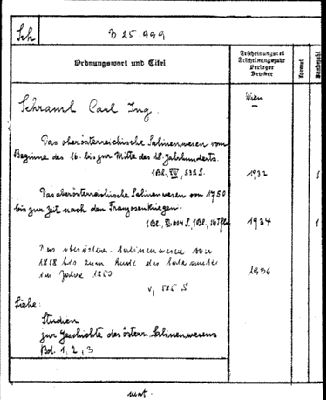 Sch
B 25 999
Ordnungswort und Titel
Erscheinungsort
Erscheinungsjahr
Verleger
Drucker
Format
Bändezahl
Schraml Carl Ing.
Wien
Das oberösterreichische Salinenwesen vom
Beginne des 16. bis zur Mitte des 18. Jahrhunderts.
(Bl. XV, 535 S.
1932
Das oberösterreichische Salinenwesen von 1750
bis zur Zeit nach den Franzosenkriegen
1934
1
Das oberösterr. Salinenwesen von
1818 bis zum Ende des Salzamtes
im Jahre 1850
1936
V, 525 S
Siehe:
Studien
zur Geschichte des österr. Salinenwesens
Bd. 1, 2, 3